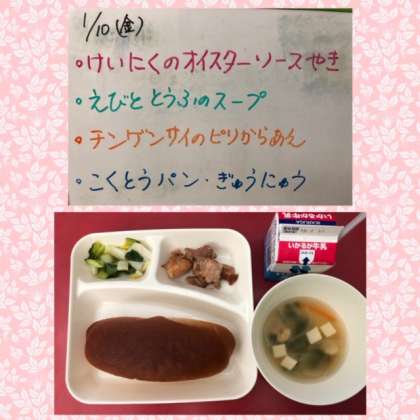 1/10(金)
・けいにくのオイスターソースやき
・えびと とうふのスープ
・チンゲンサイのピリからあえ
・こくとうパン・ぎゅうにゅう
いかるが牛乳